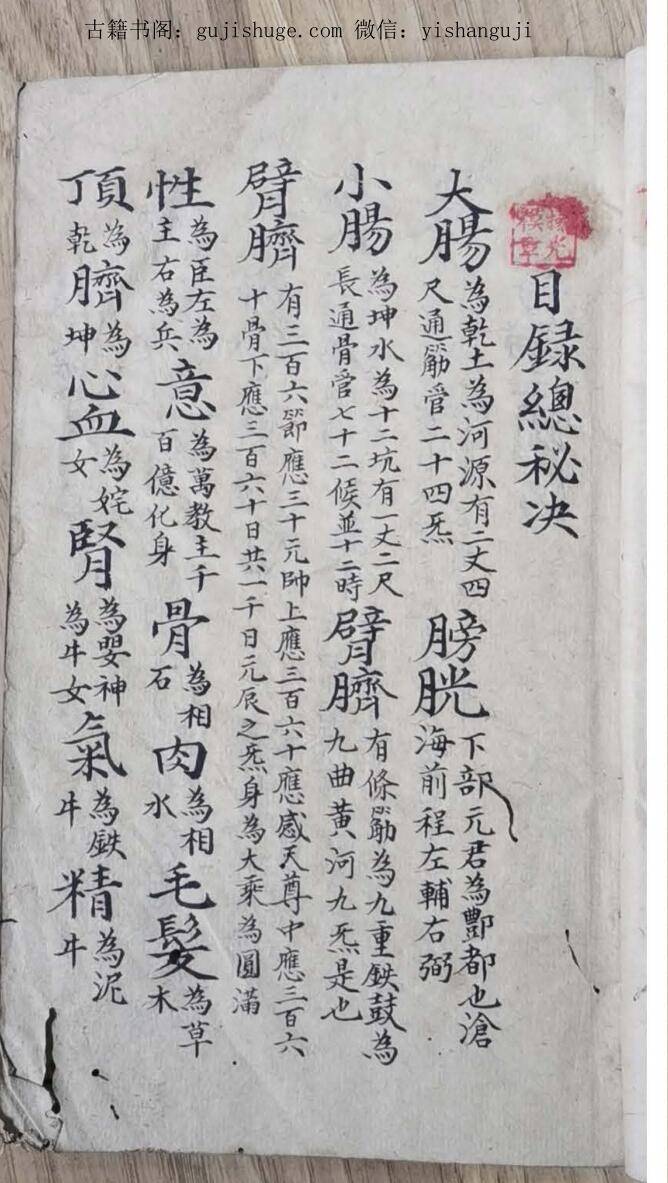 古籍书阁：gujishuge.com 微信：yishanguji
目録總秘决
大腸 為乾土為河源有二丈四
尺通筋管二十四炁
膀胱 下部元君為酆都也滄
海前程左輔右弼
小腸 為坤水為十二坑有一丈二尺
長通骨管七十二候並十二時
臂臍 有條筋為九重鉄鼓為
九曲黄河九炁是也
臂臍 有三百六節應三十元帥上應三百六十應感天尊中應三百六
十骨下應三百六十日共一千日元辰之炁身為大乘為圓滿
性 為臣左為
主右為兵
意 為萬教主千
百億化身
骨 為相
石
肉 為相
水
毛髮 為草
木
頂 為
乾
臍 為
坤
心血 為姹
女
腎 為嬰神
為牛女
氣 為鉄
牛
精 為泥
牛